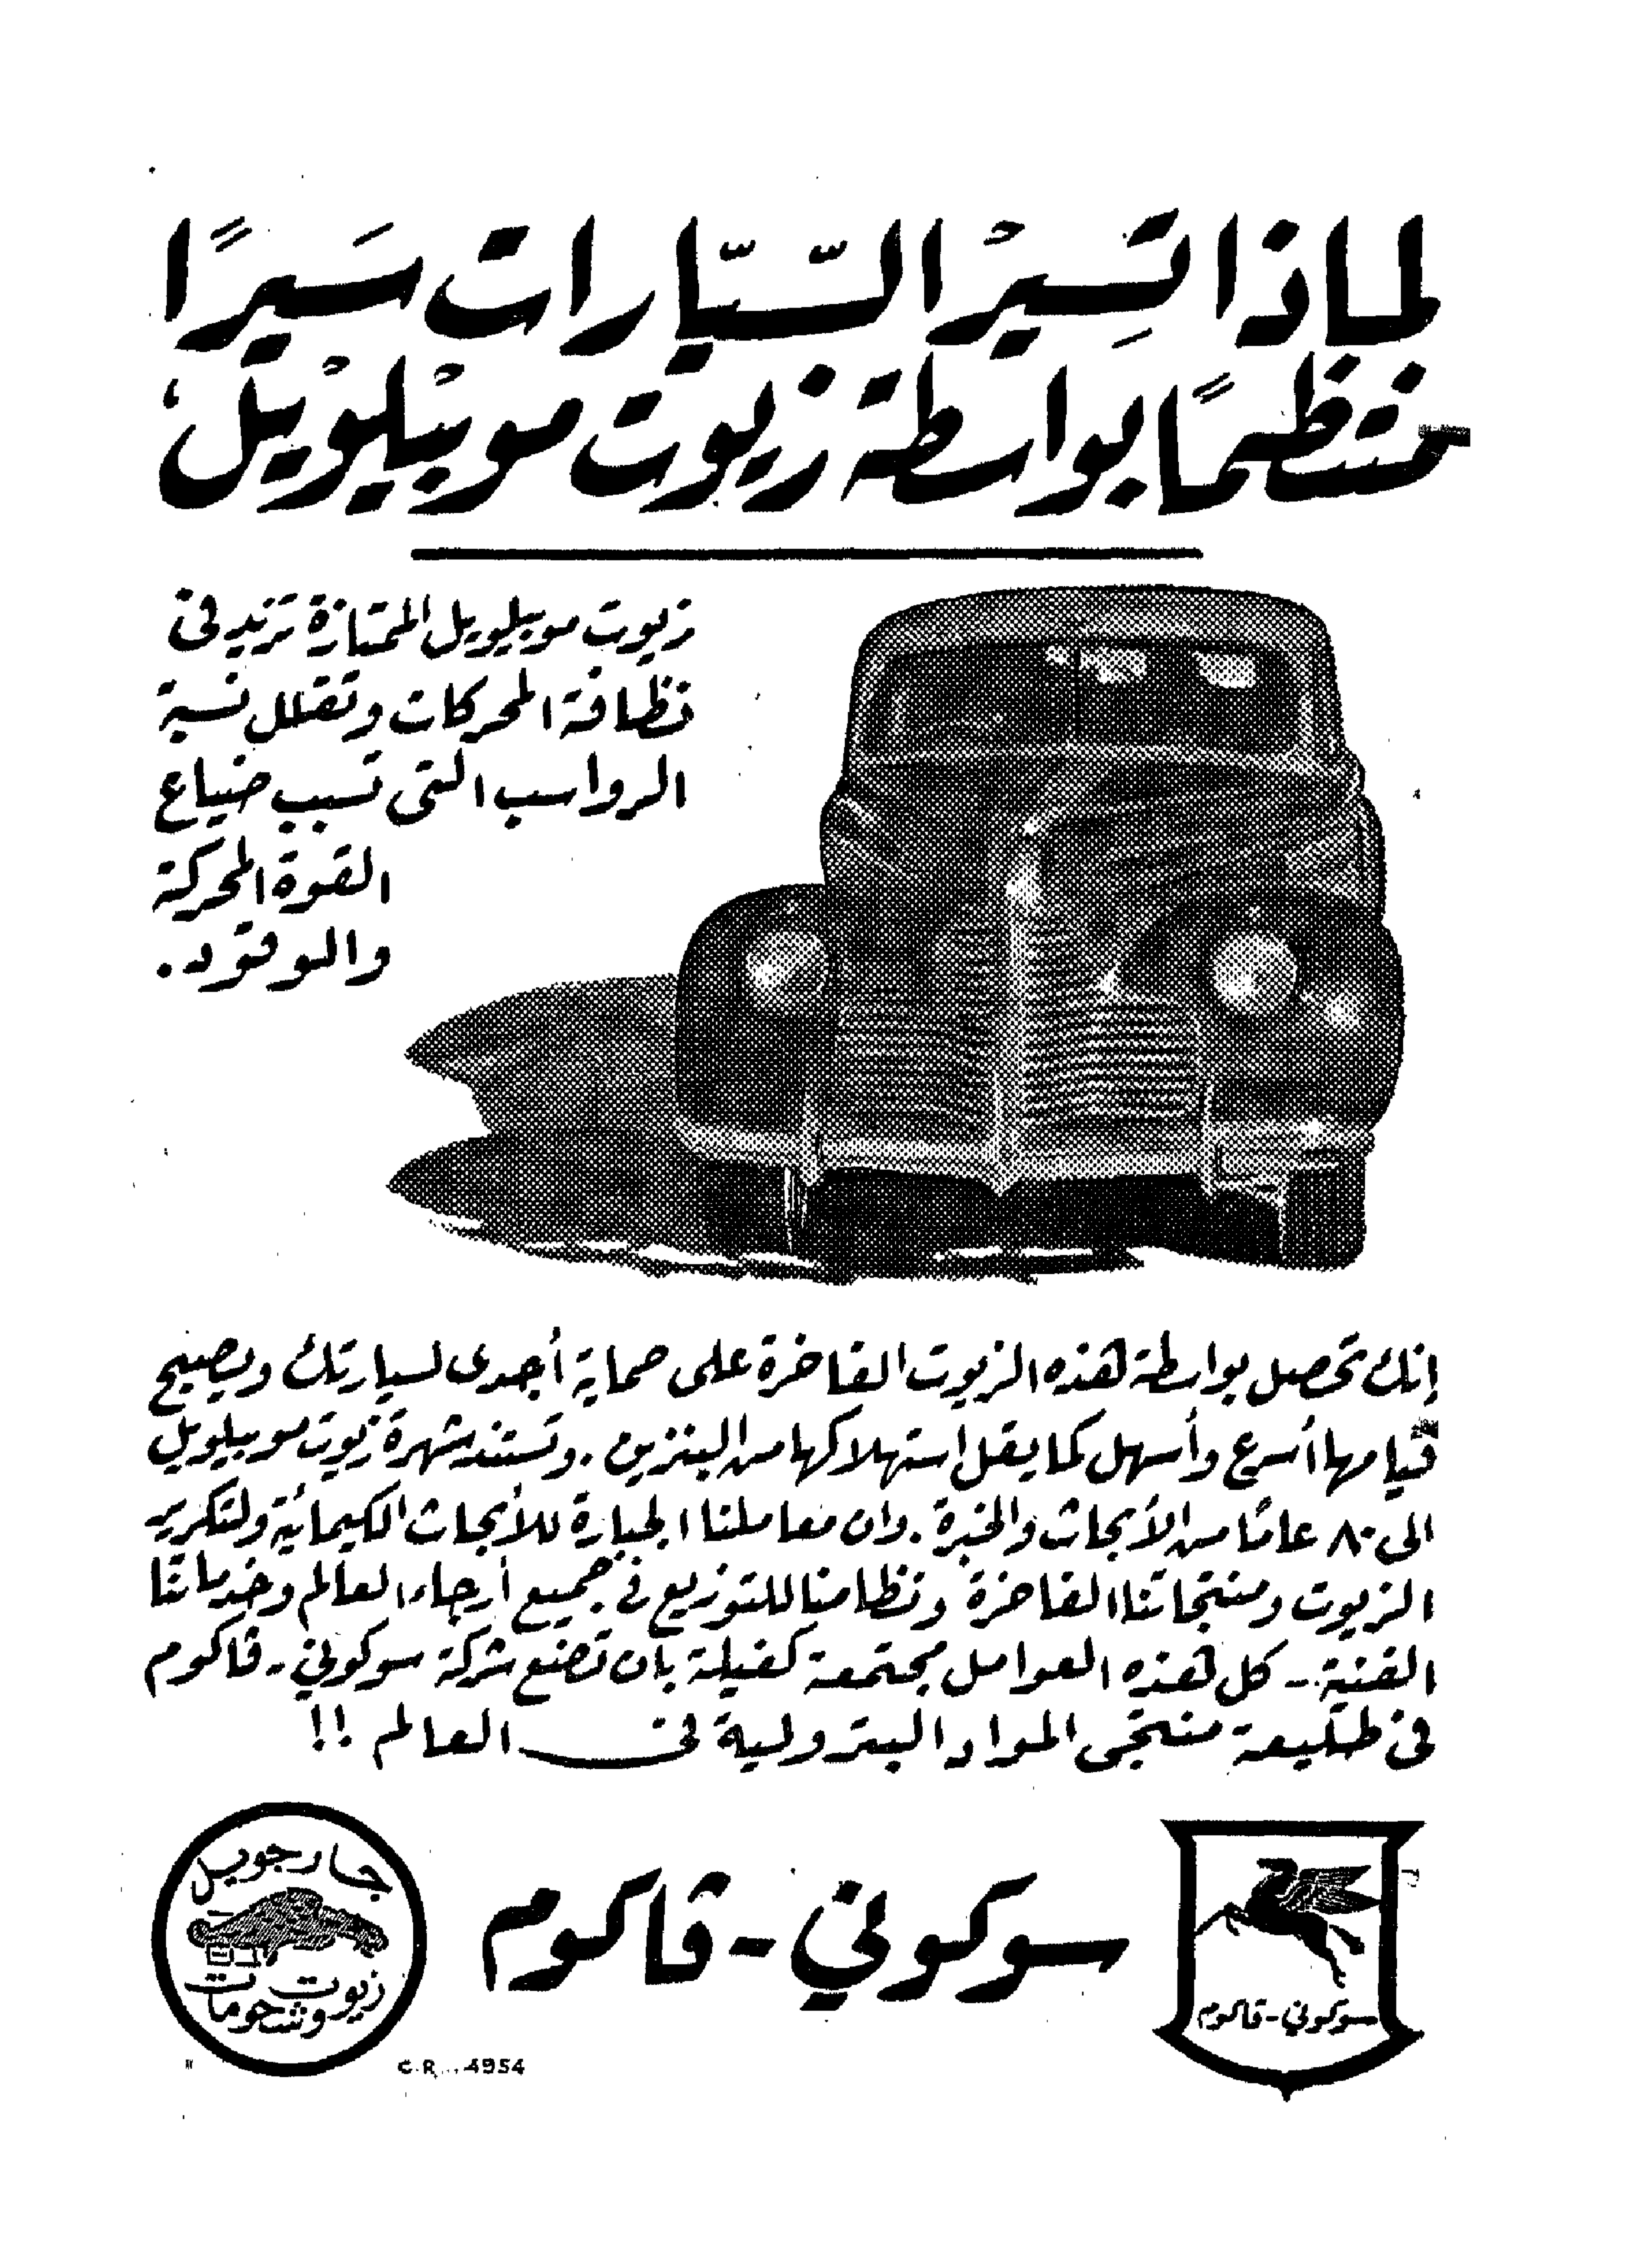 لماذا تَسِيْرُ السّيّارات سَيرًا
منتظمًا بواسطة زيوت موبيلويل؟
زيوت موبيلويل الممتازة تزيد في
نظافة المحركات وتقلل نسبة
الرواسب التي تسبب ضياع
القوة المحركة
والوقود.
إنك تحصل بواسطة هذه الزيوت الفاخرة على حماية أجدى لسيارتك ويصبح
قيامها أسرع وأسهل كما يقل استهلاكها من البنزين. وتستند شهرة زيوت موبيلويل
الى ٨٠ عامًا من الأبحاث والخبرة. وان معاملنا الجبارة للأبحاث الكيمائية ولتكرير
الزيوت ومنتجاتنا الفاخرة ونظامنا للتوزيع في جميع أرجاء العالم وخدماتنا
الفنية - كل هذه العوامل مجتمعة كفيلة بان تضع شركة سوكوني - ڤاكوم
في طليعة منتجى المواد البترولية في العالم !!
جارجويل
زيوت
وشحومات
سوكوني - ڤاكوم
سوكوني - ڤاكوم
C.R. ... 4954